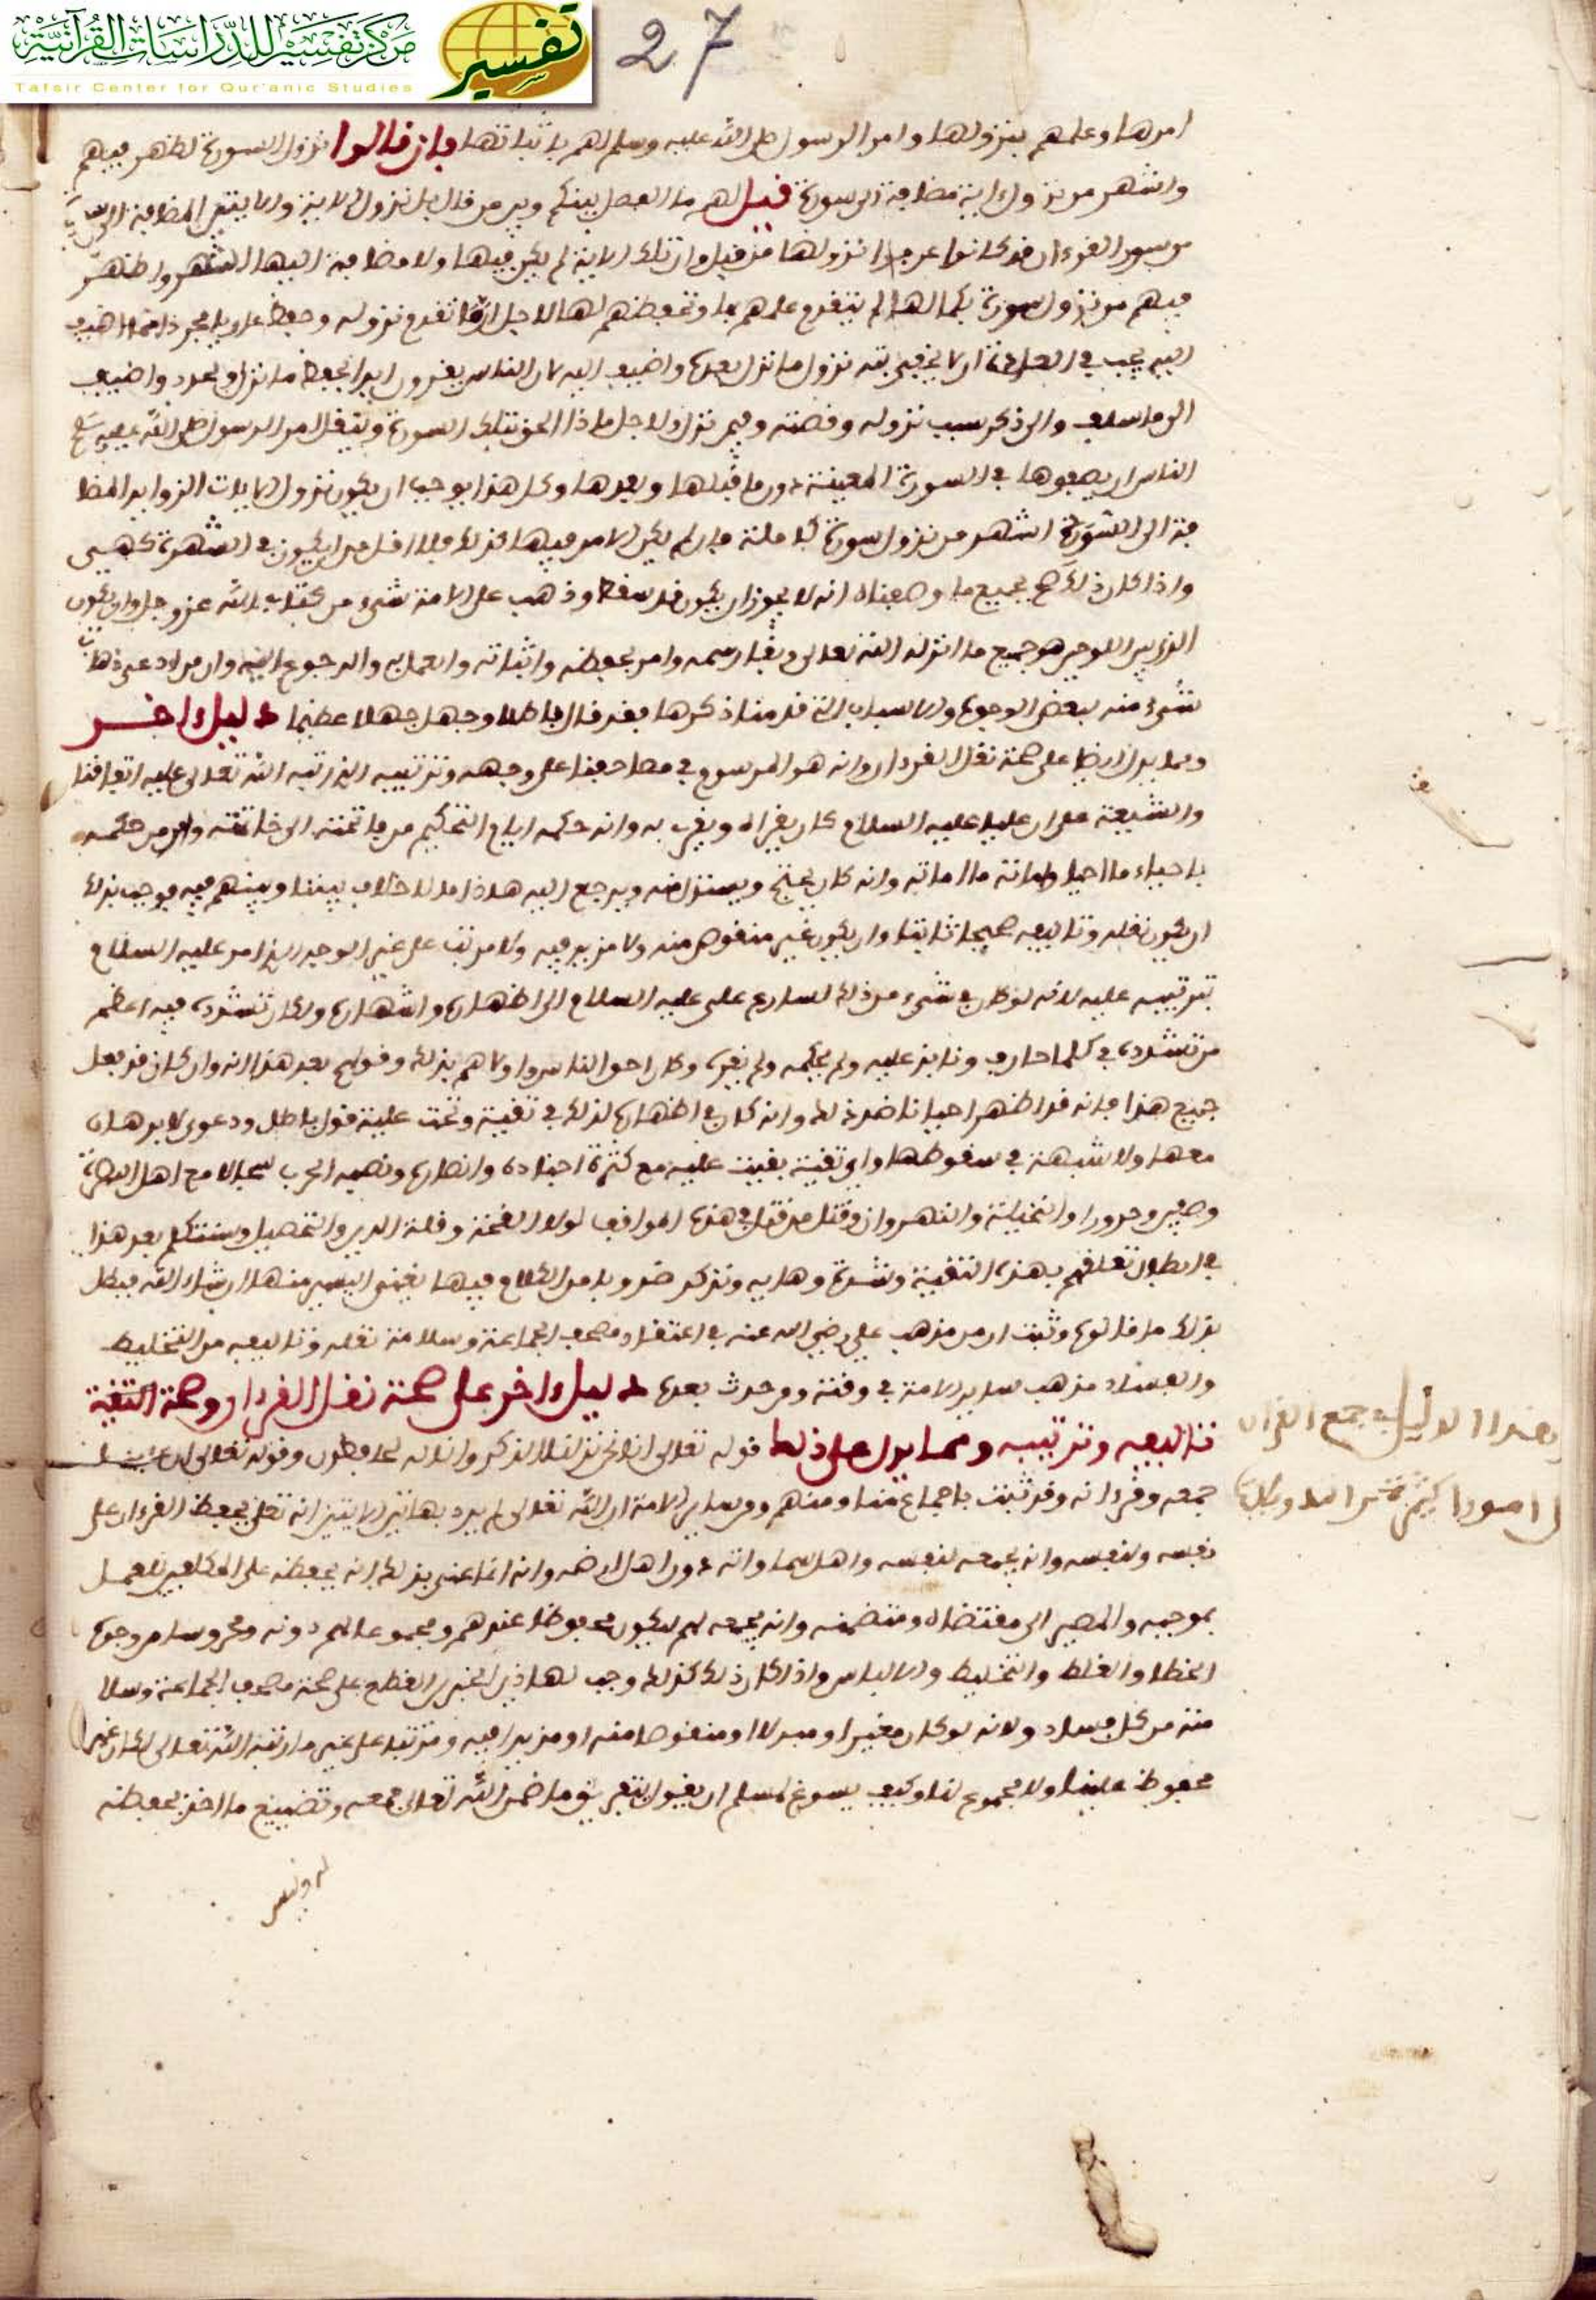 مركز تفسير للدراسات القرآنية
Tafsir Center for Qur'anic Studies
تفسير
27
امرها وعلمهم بنزولها وامر الرسول صلى الله عليه وسلم لهم باثباتها فان قالوا نزول السورة اظهر فيهم
واشهر من نزول اية مضافة الى سورة قيل لهم ما الفصل بينكم وبين من قال بل نزول الاية والايتين المضافة الى
من سور القرءان قد كانوا عرفوا نزولها من قبل وان تلك الاية لم يكن فيها ولا مضافة اليها اشهر واظهر
فيهم من نزول سورة بكمالها لم يتقدم علمهم بها وتحفظهم لها لاجل ان ما تقدم نزوله وحفظ
اليه يجب في العادة ان نزول ما نزل بعده واضيف اليه لان الناس ابدا بحفظ ما نزل واضيف
الى ما سلف والى ذكر سبب نزوله وقصته وفيمن نزل ولاجل ماذا الحق بتلك السورة ولنقل امر الرسول صلى الله عليه
الناس ان يضعوها في السورة المعينة دون ما قبلها وبعدها وكل هذا يوجب ان يكون نزول الايات الزوايد المضا
فة الى السورة اشهر من نزول سورة كاملة فان لم يكن الامر فيها كذلك فلا اقل من ان يكون في الشهرة كهي
واذا كان ذلك صح بجميع ما وصفناه انه لا يجوز ان يكون قد سقط وذهب على الامة شيء من كتاب الله عز وجل وان يكون
الذي بين اللوحين هو جميع ما انزله الله تعالى وبقا رسمه وامر بحفظه واثباته والعمل به والرجوع اليه وان من ادعى ذهاب
شيء منه ببعض الوجوه والاسباب التي قدمنا ذكرها فقد قال باطلا وجهل جهلا عظيما دليل اخر
ومما يدل ايضا على صحة نقل القرءان وانه هو المرسوم في مصاحفنا على وجهه وترتيبه الذي رتبه الله تعالى عليه اتفاقنا
والشيعة على ان عليا عليه السلام كان يقراه ويقرئ به وانه حكمه ايام التحكيم من فاتحته الى خاتمته وامر من حكمه
باحياء ما احيا واماتة ما اماته وانه كان يحتج ويستدل به ويرجع اليه هذا ما لا خلاف بيننا وبينهم فيه فوجب بذلك
ان يكون نقله وتاليفه صحيحا ثابتا وان يكون غير منقوص منه ولا مزيد فيه ولا مرتب على غير الوجه الذي امر عليه السلام
بترتيبه عليه لانه لو كان في شيء من ذلك لسارع علي عليه السلام الى اظهاره واشهاره ولكان تشدده فيه اعظم
من تشدده في كلما حارب ونابذ عليه ولم يحكمه ولم يقره وكان احق الناس واولاهم بذلك وقولهم بعد هذا انه وان كان قد فعل
جميع هذا فانه قد اظهر احيانا ضد ذلك وانه كان في اظهاره لذلك في تقية وتحت غلبة قول باطل ودعوى لا برهان
معها ولا شبهة في سقوطها واي تقية بقيت عليه مع كثرة اجناده وانصاره ونصبه الحرب سجالا مع اهل البصرة
وصفين وحرورا والنخيلة والنهروان وقتل من قتل في هذه المواقف لولا القحة وقلة الدين والتحصيل وسنتكلم بعد هذا
في ابطال تعلقهم بهذه التقية وشدة وهايه ونذكر ضروبا من الكلام فيها يغني اليسير منها ان شاء الله فبطل
بذلك ما قالوه وثبت ان من مذهب علي رضي الله عنه في اعتقاد مصحف الجماعة وسلامة نقله وتاليفه من التخليط
والفساد مذهب ساير الامة في وقته ومن حدث بعده دليل اخر على صحة نقل القرءان وصحة
تاليفه وترتيبه ومما يدل على ذلك قوله تعالى انا نحن نزلنا الذكر وانا له لحافظون وقوله تعالى ان علينا
جمعه وقرءانه وقد ثبت باجماع منا ومنهم ومن ساير الامة ان الله تعالى لم يرد بهاتين الايتين انه تعلى يحفظ القرءان على
نفسه ولنفسه وانه يجمعه لنفسه واهل سماواته دون اهل ارضه وانه انما عنى بذلك انه يحفظه على المكلفين للعمل
بموجبه والمصير الى مقتضاه ومتضمنه وانه يجمعه لهم ليكون محفوظا عندهم ومجموعا لهم دونه ومحروسا من وجوه
الخطا والغلط والتخليط والالباس واذا كان ذلك كذلك وجب بهاذين الخبرين القطع على صحة مصحف الجماعة وسلا
مته من كل فساد ولانه لو كان مغيرا او مبدلا او منقوصا منه او مزيدا فيه ومرتبا على غير ما رتبه الله تعالى لكان غير
محفوظ علينا ولا مجموع لنا وكيف يسوغ لمسلم ان يقول بتفريق ما ضمن الله تعالى جمعه وتضييع ما اخبر بحفظه
جمع القران